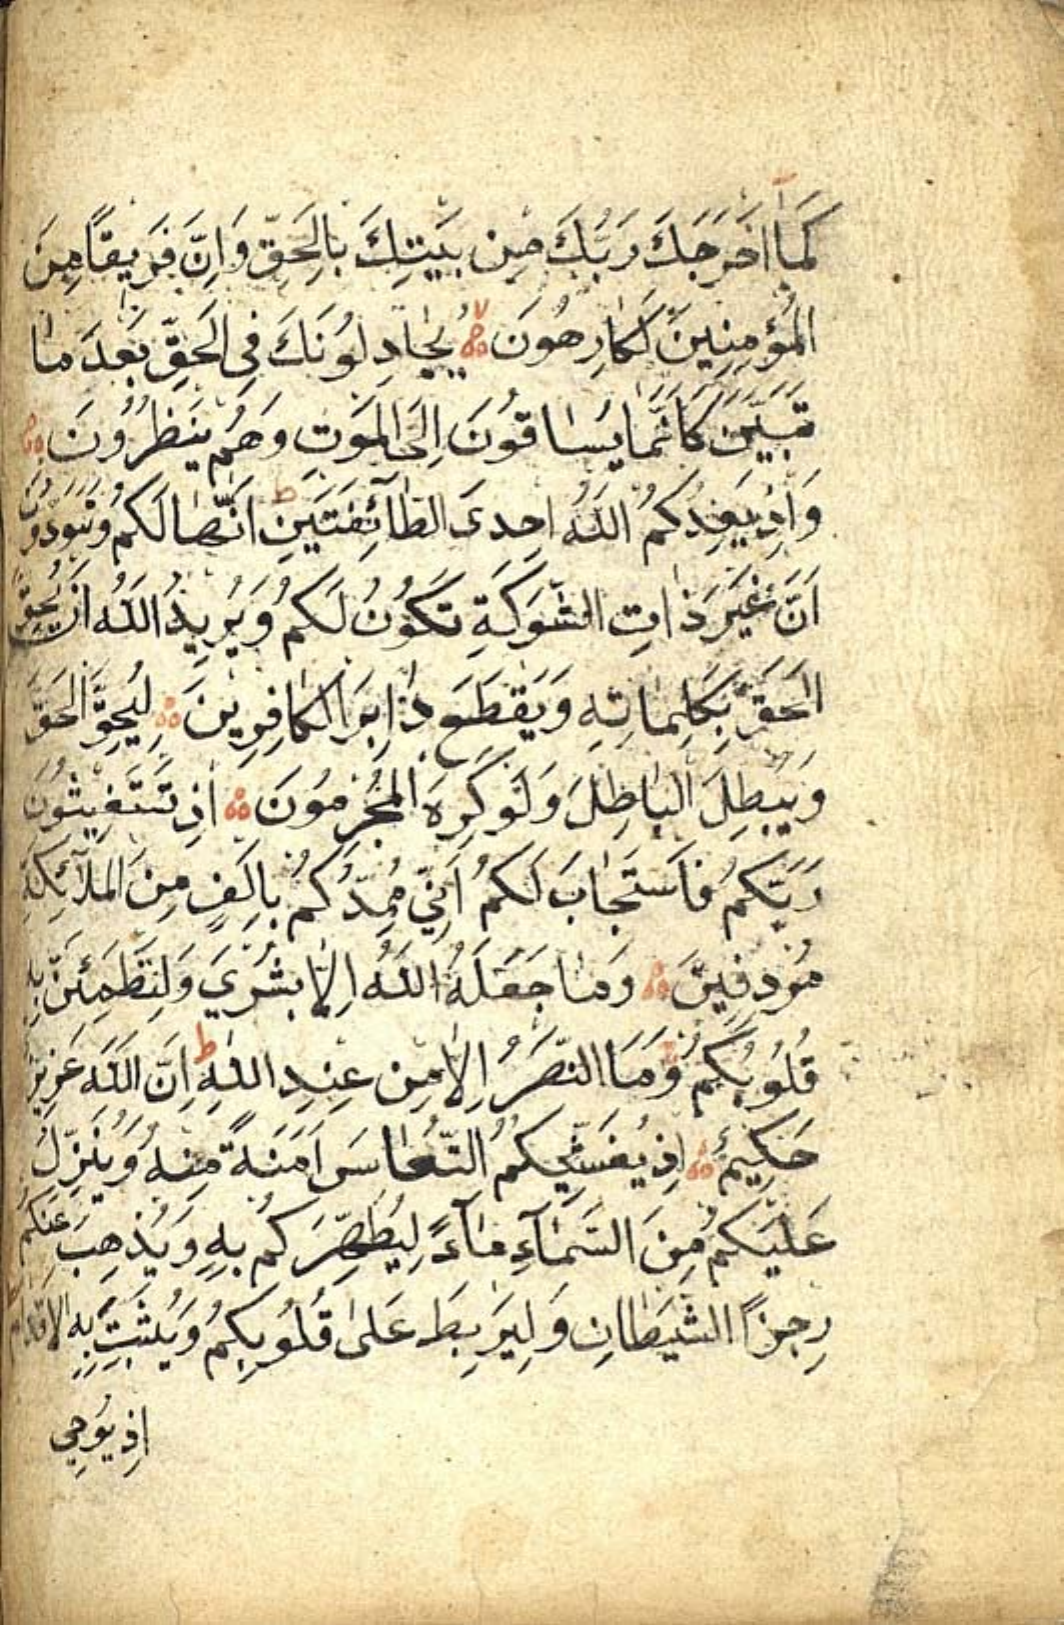 كَمَآ اَخْرَجَكَ رَبُّكَ مِنْ بَيْتِكَ بِالْحَقِّ وَاِنَّ فَرِيقًا مِنَ
الْمُؤْمِنِينَ لَكَارِهُونَ يُجَادِلُونَكَ فِي الْحَقِّ بَعْدَ مَا
تَبَيَّنَ كَاَنَّمَا يُسَاقُونَ اِلَى الْمَوْتِ وَهُمْ يَنْظُرُونَ
وَاِذْ يَعِدُكُمُ اللّٰهُ اِحْدَى الطَّآئِفَتَيْنِ ط اَنَّهَا لَكُمْ وَتَوَدُّونَ
اَنَّ غَيْرَ ذَاتِ الشَّوْكَةِ تَكُونُ لَكُمْ وَيُرِيدُ اللّٰهُ اَنْ يُحِقَّ
الْحَقَّ بِكَلِمَاتِهِ وَيَقْطَعَ دَابِرَ الْكَافِرِينَ لِيُحِقَّ الْحَقَّ
وَيُبْطِلَ الْبَاطِلَ وَلَوْ كَرِهَ الْمُجْرِمُونَ اِذْ تَسْتَغِيثُونَ
رَبَّكُمْ فَاسْتَجَابَ لَكُمْ اَنِّي مُمِدُّكُمْ بِاَلْفٍ مِنَ الْمَلَآئِكَةِ
مُرْدِفِينَ وَمَا جَعَلَهُ اللّٰهُ اِلَّا بُشْرَي وَلِتَطْمَئِنَّ بِهِ
قُلُوبُكُمْ وَمَا النَّصْرُ اِلَّا مِنْ عِنْدِ اللّٰهِ ط اِنَّ اللّٰهَ عَزِيزٌ
حَكِيمٌ اِذْ يُغَشِّيكُمُ النُّعَاسَ اَمَنَةً مِنْهُ وَيُنَزِّلُ
عَلَيْكُمْ مِنَ السَّمَآءِ مَآءً لِيُطَهِّرَكُمْ بِهِ وَيُذْهِبَ عَنْكُمْ
رِجْزَ الشَّيْطَانِ وَلِيَرْبِطَ عَلَى قُلُوبِكُمْ وَيُثَبِّتَ بِهِ الْاَقْدَامَ
اِذْ يُوحِي